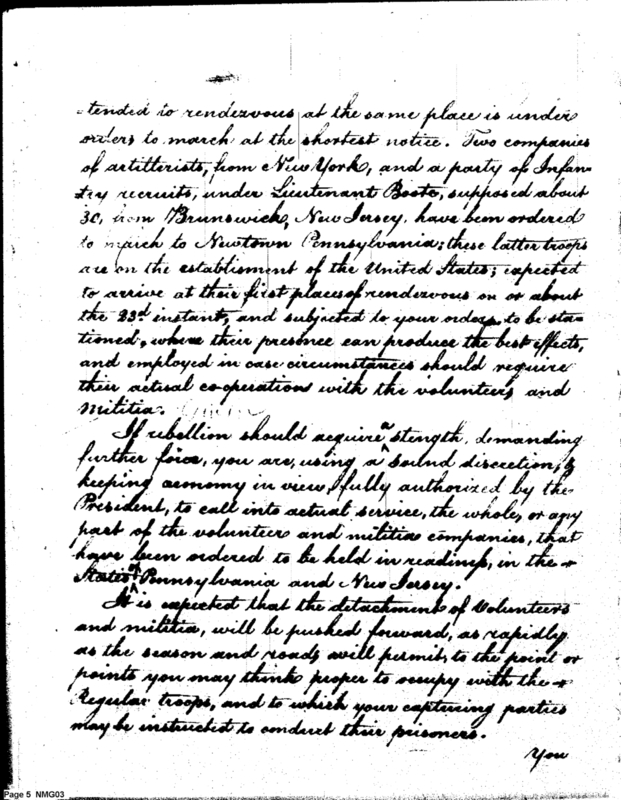 tended to rendezvous at the same place is under
orders to march at the shortest notice. Two companies
of artitterists, from New York, and a party of Infan-
try recruits, under Lieutenant Boote, supposed about
30, from Brunswick, New Jersey, have been ordered
to march to Newtown Pennsylvania; these latter troops
are on the establisment of the United States; expected
to arrive at their first places of rendezvous on or about
the 23d instant, and subjected to your orders to be sta-
tioned, where their presence can produce the best effects,
and employed in case circumstances should require
their actual co-operation with the volunteers and
Militia.
If rebellion should acquire a stength, demanding
further force, you are, using a sound discretion, &
keeping in view, fully authorized by the
President, to call into actual service, the whole, or any
part of the volunteer and militia companies, that
have been ordered to be held in readiness, in the
States of Pennsylvania and New Jersey.
It is expected that the detachment of Volunteers
and militia, will be pushed forward, as rapidly
as the season and roads will permit, to the point or
points you may think proper to occupy with the
Regular troops, and to which your capturing parties
may be instructed to conduct their prisoners.
You
Page 5 NMG03